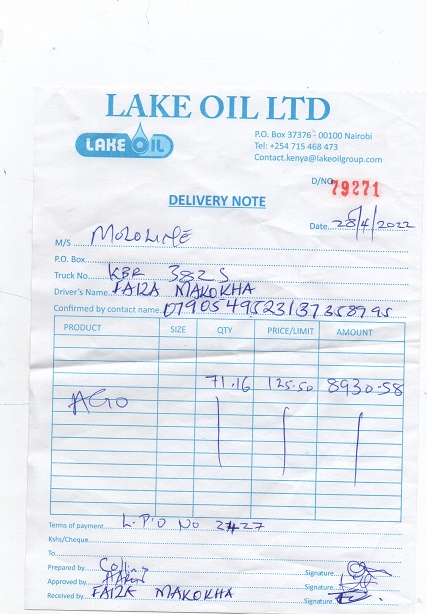 LAKE OIL LTD
LAKE OIL
P.O. Box 37376 - 00100 Nairobi
Tel: +254 715 468 473
Contact.kenya@lakeoilgroup.com
D/NO 79271
DELIVERY NOTE
Date 28/4/2022
M/S MOLOLINE
P.O. Box
Truck No. KBR 382 S
Driver's Name FAIZA MAKOKHA
Confirmed by contact name 0790549523137358795
PRODUCT SIZE QTY PRICE/LIMIT AMOUNT
AGO 71.16 125.50 8930-58
Terms of payment L.P.O NO 2427
Kshs/Cheque
To
Prepared by Collins Signature
Approved by Signature
Received by FAIZA MAKOKHA Signature